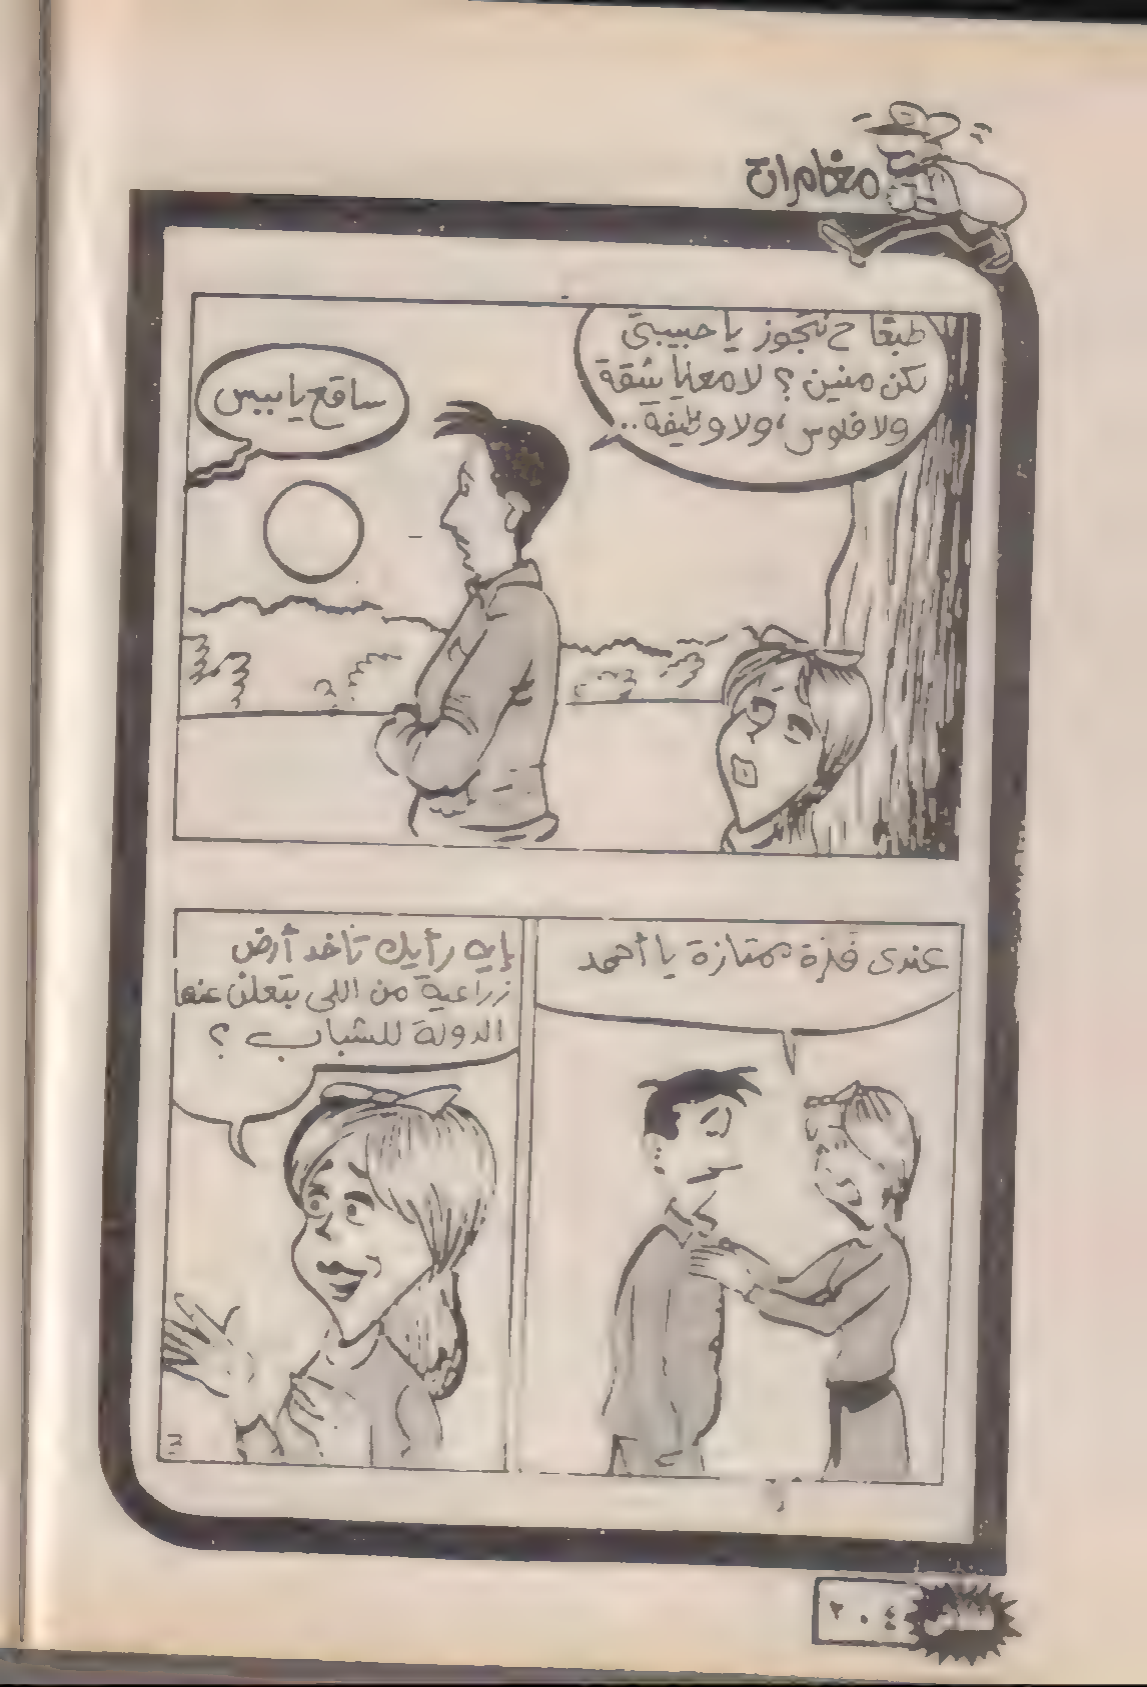 مغامرات
طبعًا ح نتجوز يا حبيبتى
لكن منين ؟ لا معانا شقة
ولا فلوس، ولا وظيفة..
ساقع يا بيبس
عندى فكرة ممتازة يا أحمد
إيه رأيك تاخد أرض
زراعية من اللى بتعلن عنها
الدولة للشباب ؟
٢٠٤